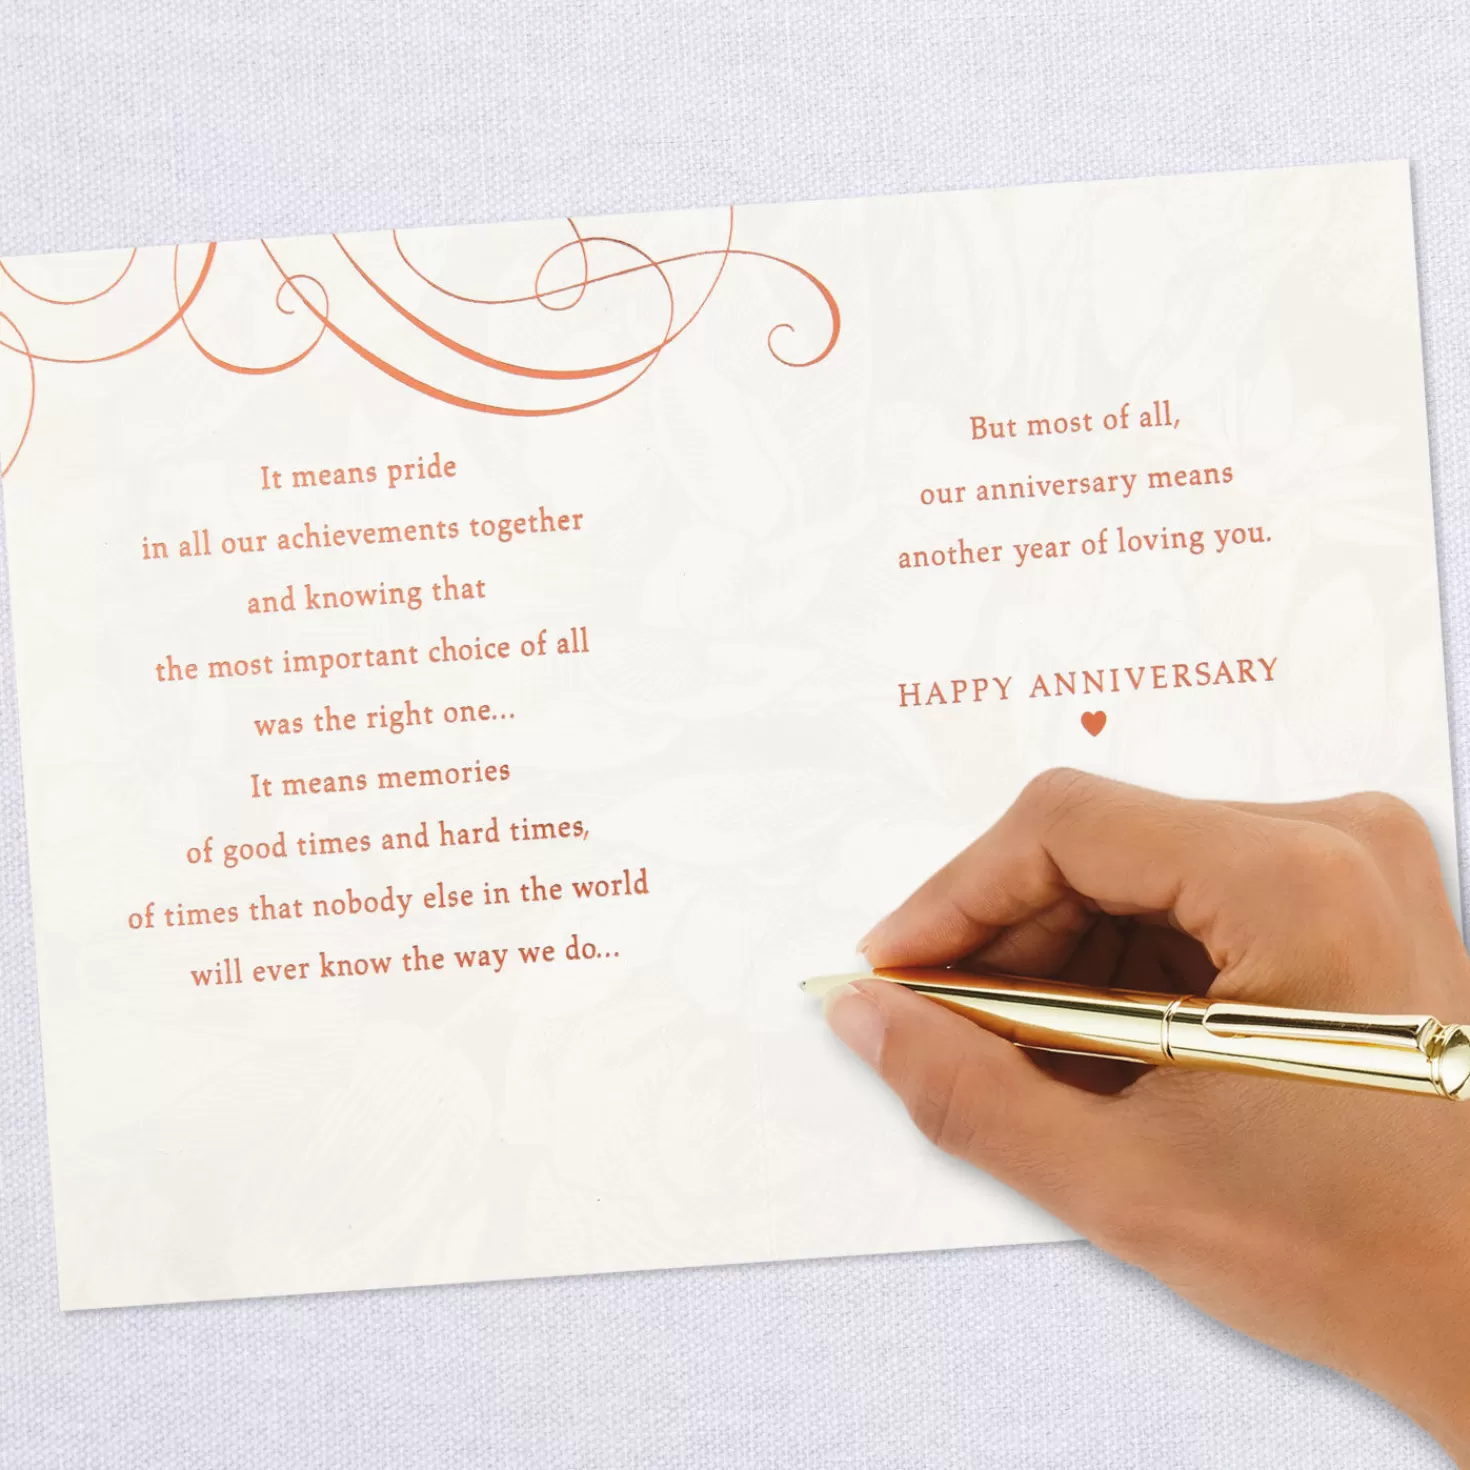 It means pride
in all our achievements together
and knowing that
the most important choice of all
was the right one...
It means memories
of good times and hard times,
of times that nobody else in the world
will ever know the way we do...
But most of all,
our anniversary means
another year of loving you.
HAPPY ANNIVERSARY